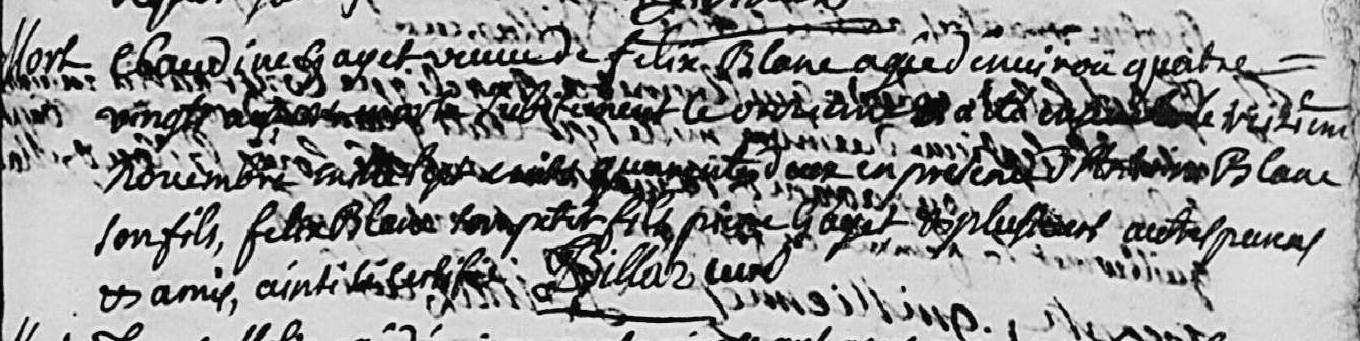 Mort Claudine Gayet veuve de felix Blanc agée d'environ quatre
vingt ans morte subitement le onzieme a été le
Novembre mille sept cents quarante deux en presence d'Antoine Blanc
son fils, felix Blanc son petit fils, pierre Gayet & plusieurs autres parens
& amis, ainsi le certifie Billaz curé